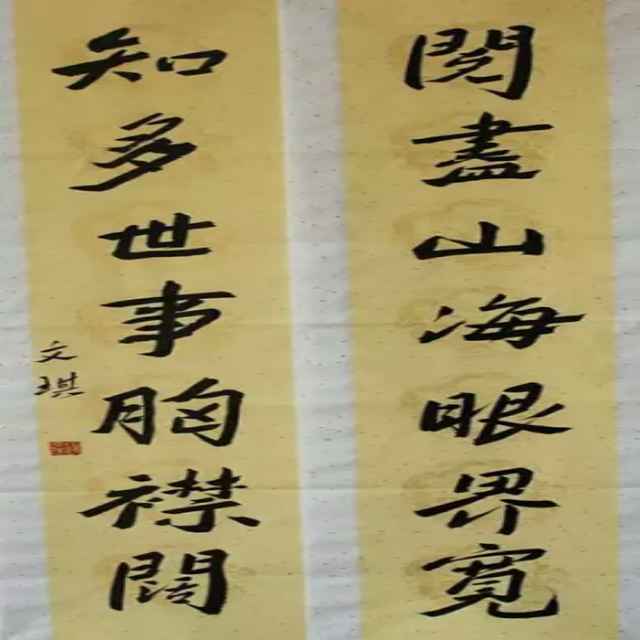 閱盡山海眼界寬
知多世事胸襟闊
文琪